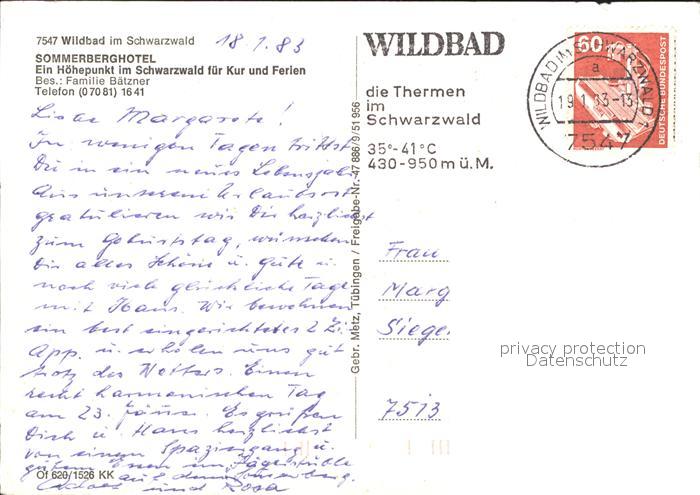 7547 Wildbad im Schwarzwald
18.1.83
SOMMERBERGHOTEL
Ein Höhepunkt im Schwarzwald für Kur und Ferien
Bes.: Familie Bätzner
Telefon (07081) 1641
Liebe Margarete!
In wenigen Tagen trittst
Du in ein neues Lebensjahr.
Aus unserem Urlaubsort
gratulieren wir Dir herzlichst
zum Geburtstag, wünschen
Dir alles Schöne u. Gute u.
noch viele glückliche Tage
mit Hans. Wir bewohnen
ein best eingerichtetes 2 Zi.
App. u. erholen uns gut
trotz des Wetters. Einen
recht harmonischen Tag
am 23. Es grüßen
Dich u. Hans herzlichst
von einem Spaziergang u.
gutem Essen im Jägerstüble
auf dem Sommerberg.
und Rosa
Of 620/1526 KK
Gebr. Metz, Tübingen / Freigabe-Nr. 47 886/9/51 956
WILDBAD
die Thermen
im
Schwarzwald
35°-41°C
430-950 m ü. M.
WILDBAD IM SCHWARZWALD 1
a
19.1.83-13
7547
60
DEUTSCHE BUNDESPOST
Frau
Marg
Siege
privacy protection
Datenschutz
7513